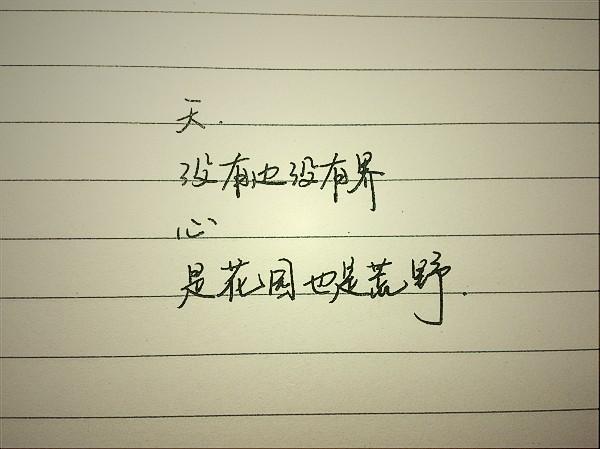 天.
没有边没有界
心
是花园也是荒野.